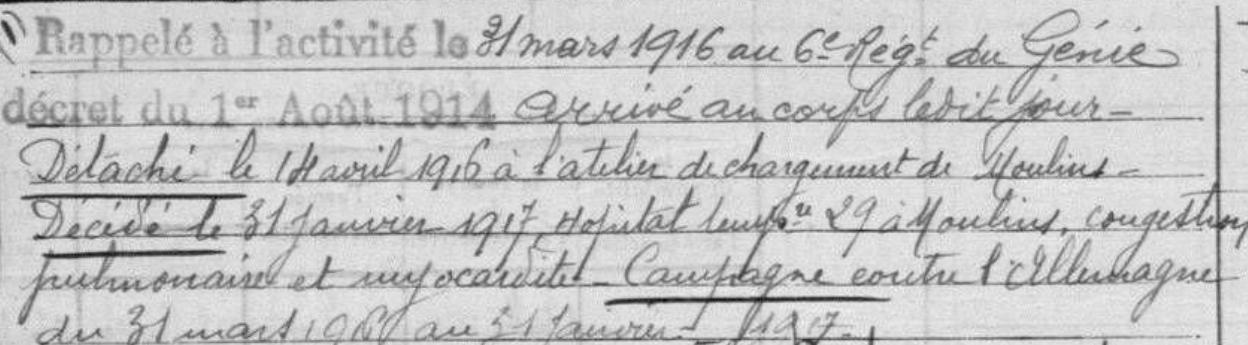 (1) Rappelé à l'activité le 31 mars 1916 au 6e Régt du Génie
décret du 1er Août 1914 arrivé au corps ledit jour -
Détaché le 14 avril 1916 à l'atelier de chargement de Moulins -
Décédé le 31 Janvier 1917, Hopital tempre 29 à Moulins, congestion
pulmonaire et myocardite - Campagne contre l'Allemagne
du 31 mars 1916 au 31 Janvier - 1917 -